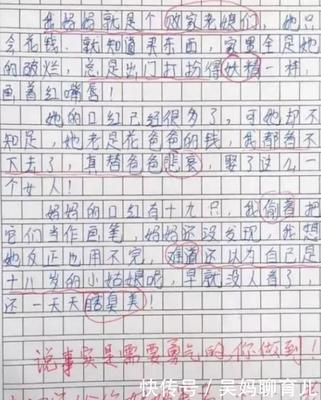 我妈妈就是个败家老娘们,她只
会花钱。就知道买东西,家里全是她
的破烂,总是出门打扮得妖精一样,
画着红嘴唇!
她的口红已经很多了,可她却不
知足,她老是花爸爸的钱,我都看不
下去了,真替爸爸悲哀,娶了这么一
个女人!
妈妈的口红有十九只,我偷着把
它们当作画笔,妈妈还没发现,我想
她反正也用不完,难道还以为自己是
十八岁的小姑娘呢,早就没人看了,
还一天天臭美!
说事实是需要勇气的,你做到!
快传号/吴妈聊育儿